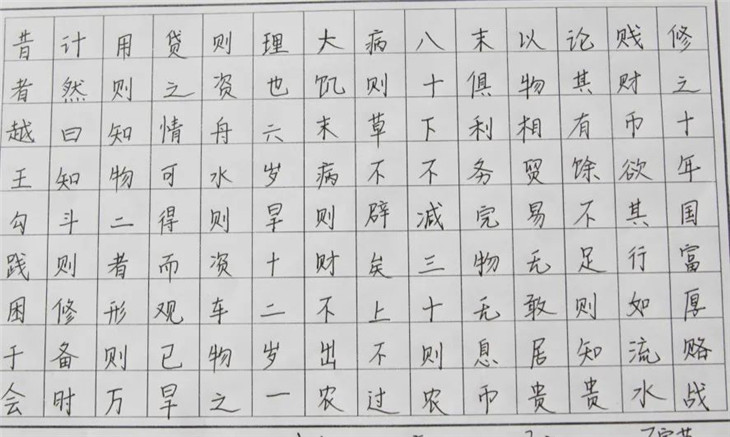 昔者越王勾践困于会
计然曰知斗则修备时
用则知物二者形则万
贷之情可得而观已旱
则资舟水则资车物之
理也六岁旱十二岁一
大饥末病则财不出农
病则草不辟矣上不过
八十下不减三十则农
末俱利务完物无息币
以物相贸易无敢居贵
论其有馀不足则知贵
贱财币欲其行如流水
修之十年国富厚赂战